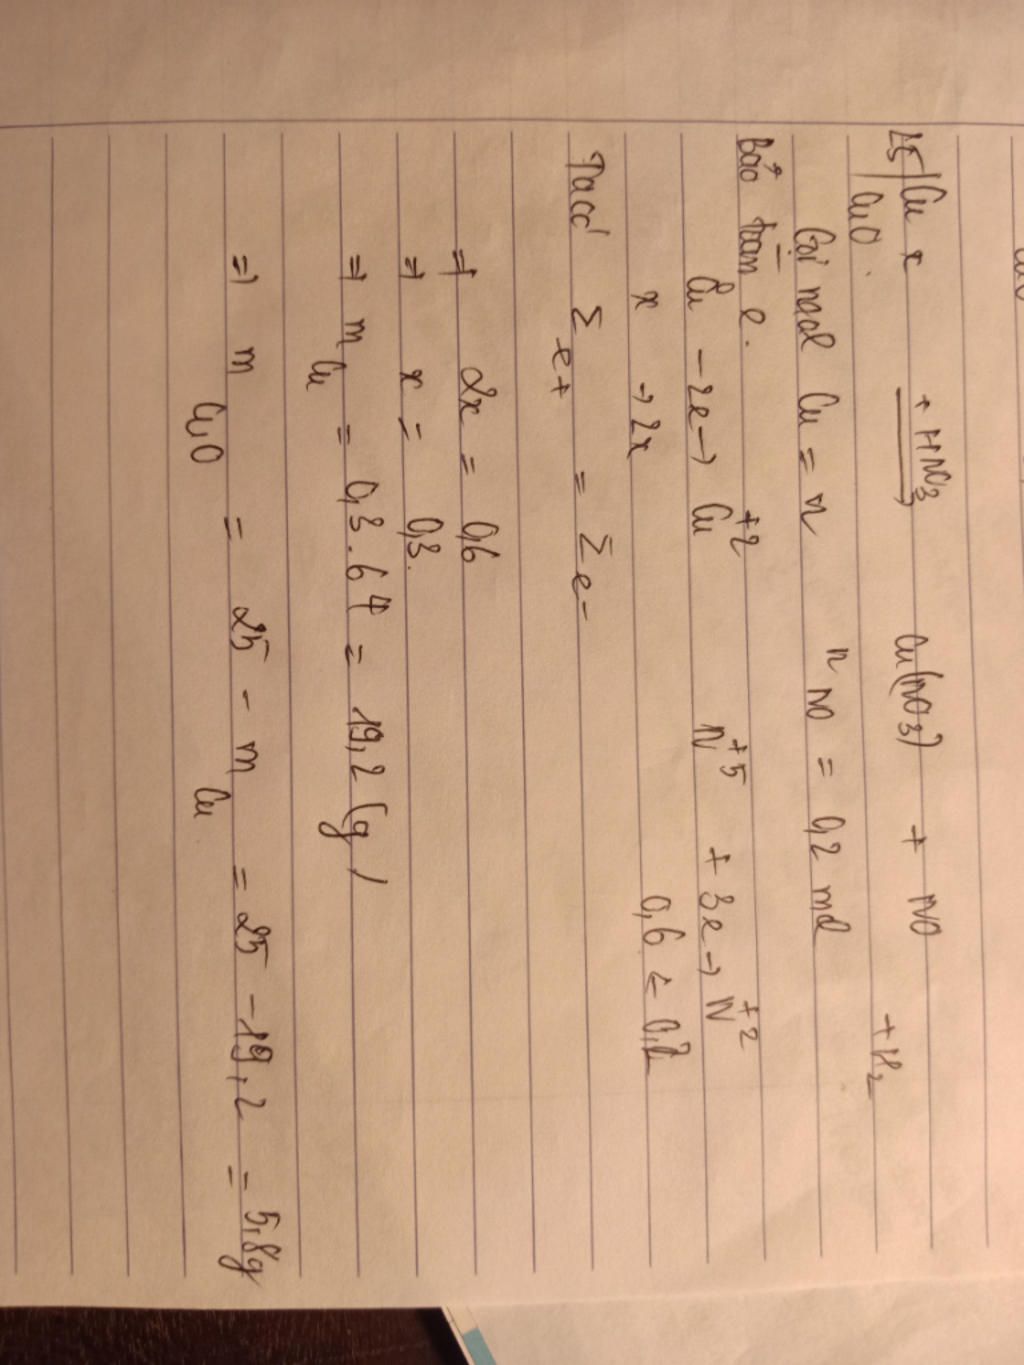 25 | Cu x + HNO3 → Cu(NO3)2 + NO + H2
CuO.
Gọi nmol Cu = x nNO = 0,2 mol
Bảo toàn e.
Cu − 2e → Cu+2 N+5 + 3e → N+2
x → 2x 0,6 ← 0,2
Ta có Σe+ = Σe−
⇒ 2x = 0,6
⇒ x = 0,3.
⇒ mCu = 0,3 . 64 = 19,2 (g)
⇒ mCuO = 25 − mCu = 25 − 19,2 = 5,8g